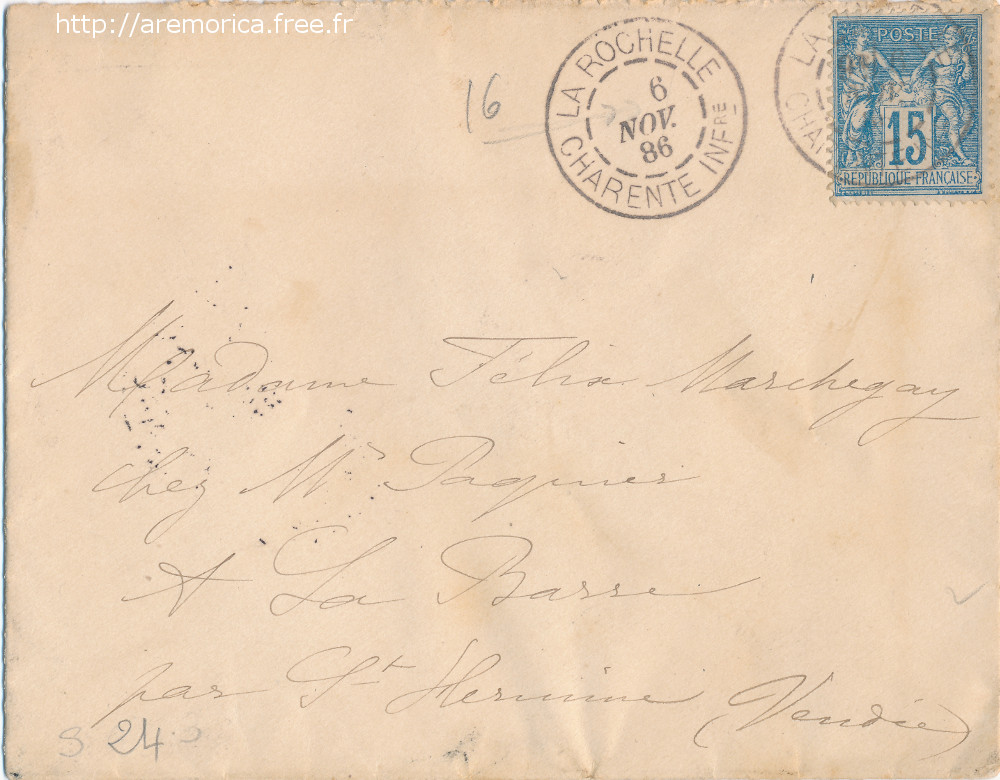 http://aremorica.free.fr
16
LA ROCHELLE
6
NOV.
86
CHARENTE INFRE
LA
CHAR
POSTE
15
REPUBLIQUE FRANÇAISE
Madame Félix Marchegay
chez Mr Paquier
A La Barre
par St Hermine (Vendée)
S 24